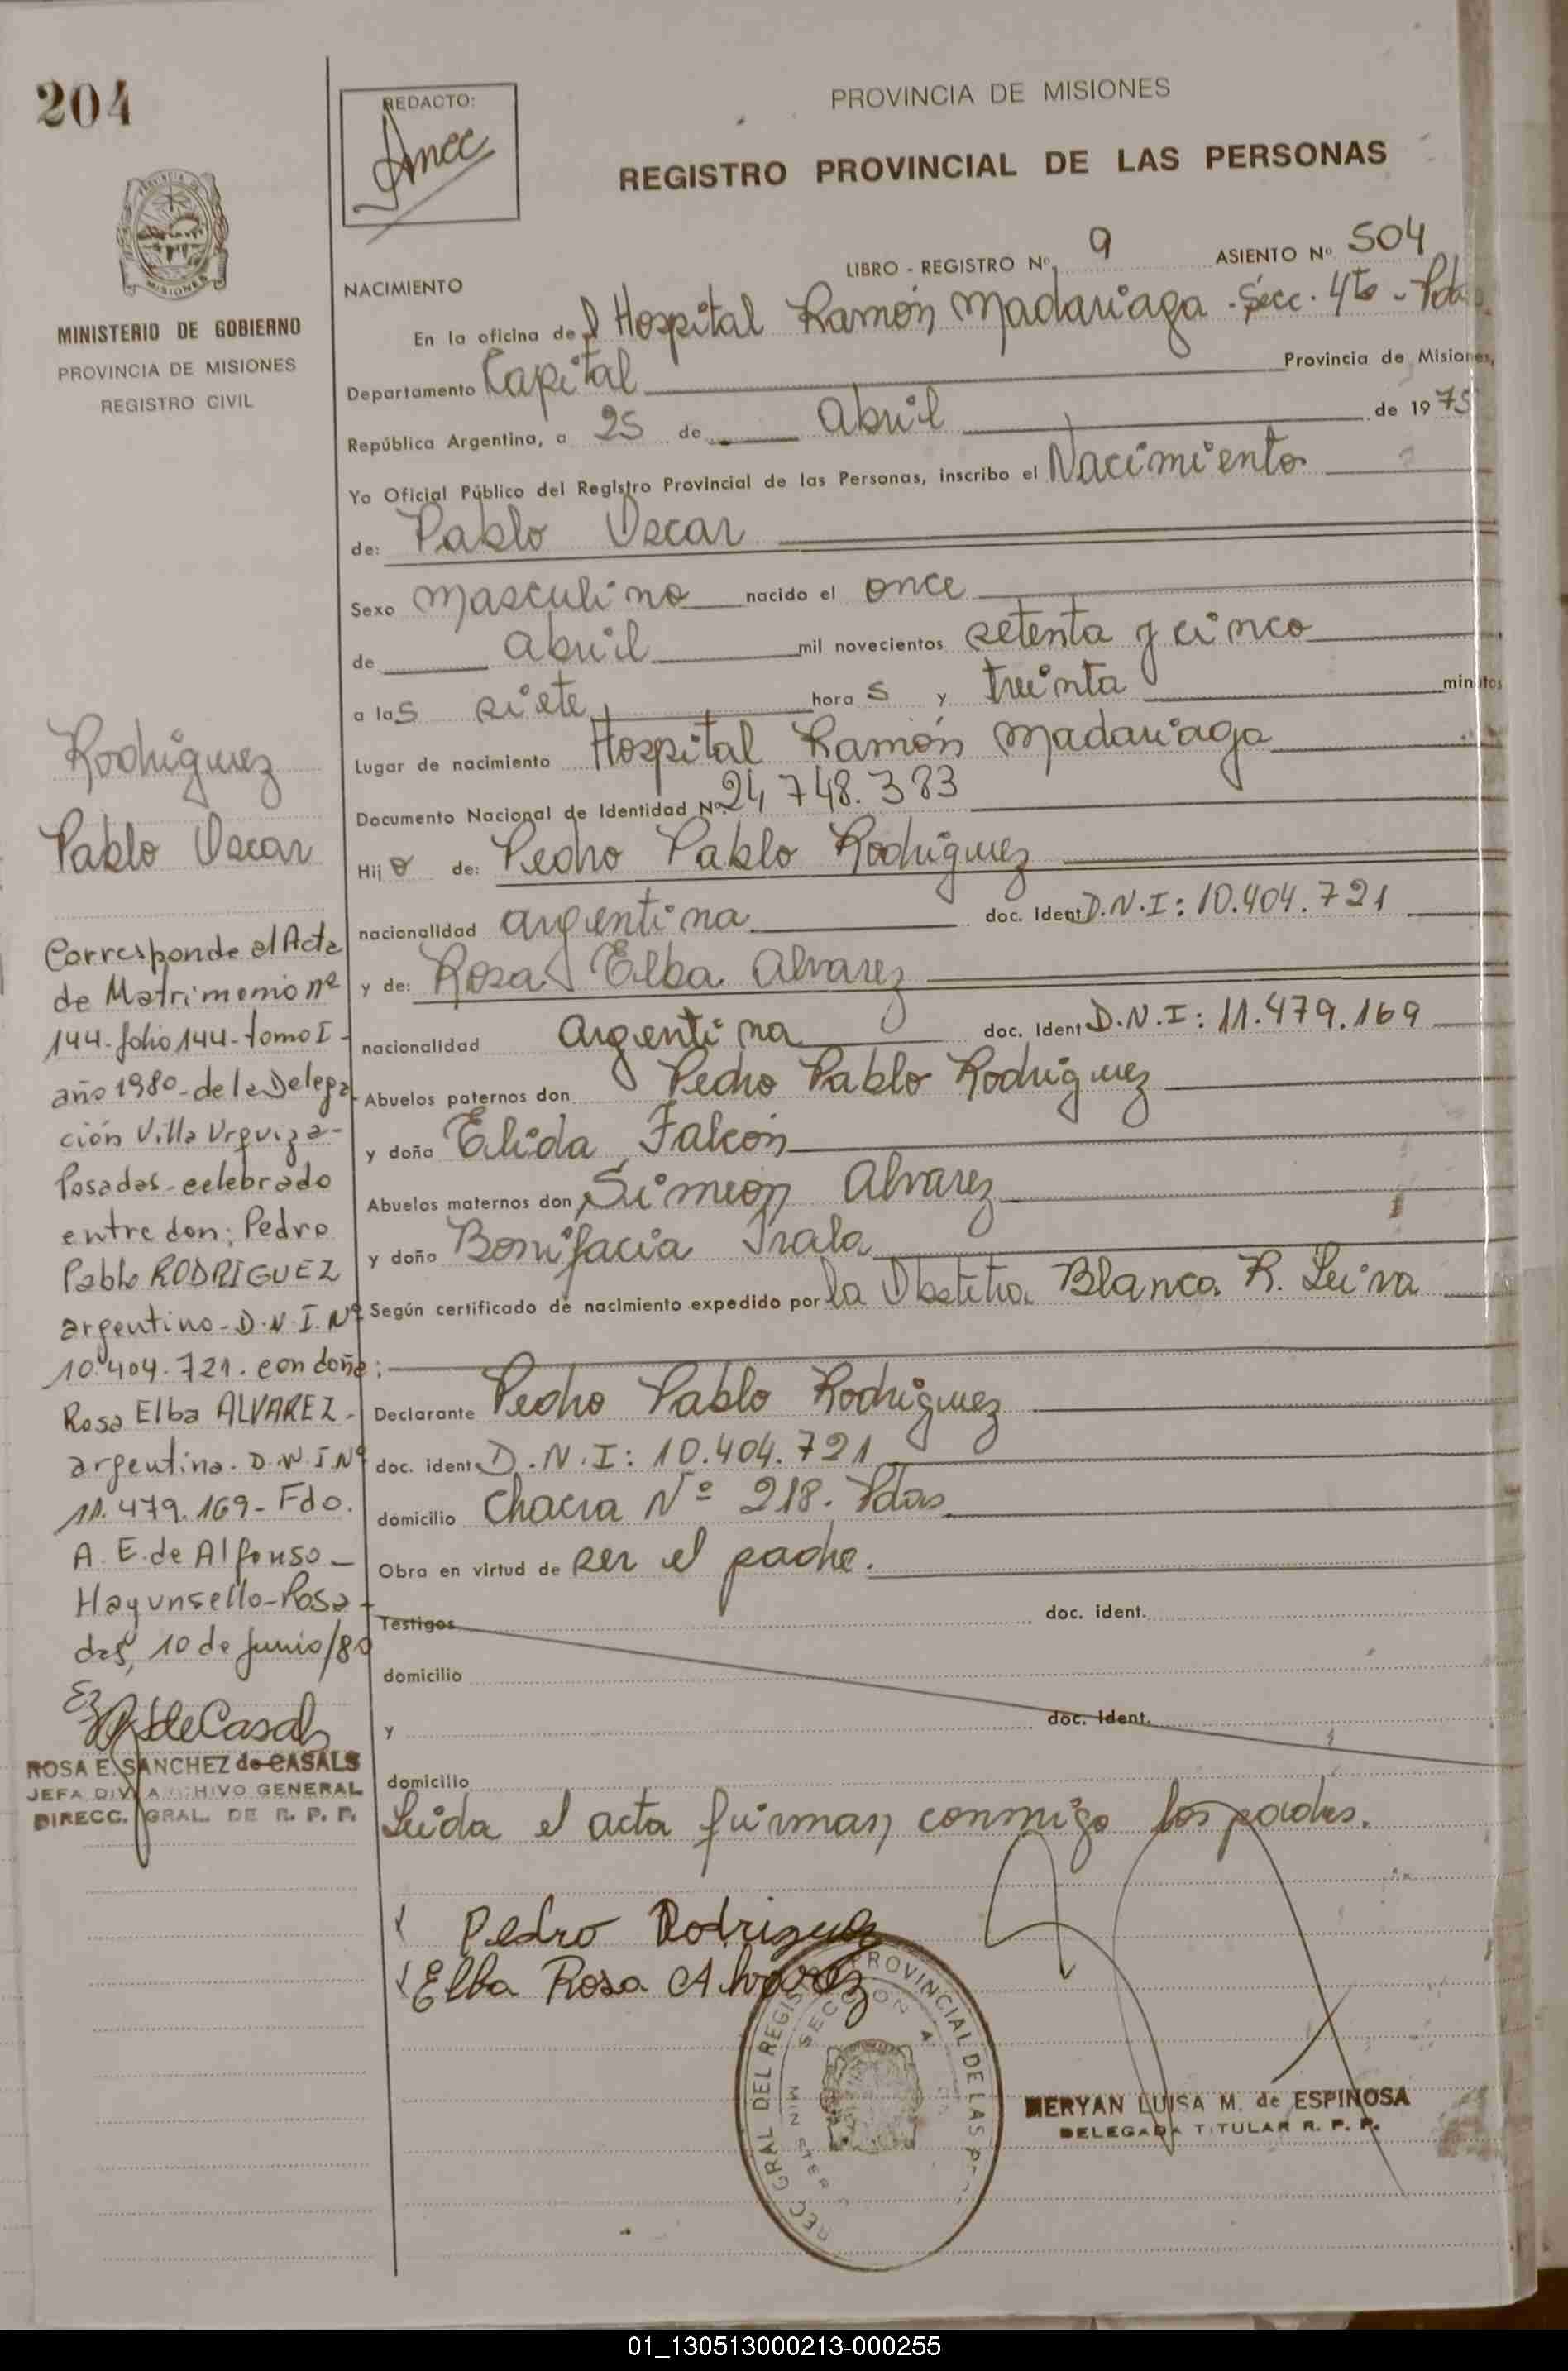 204
REDACTO:
PROVINCIA DE MISIONES
REGISTRO PROVINCIAL DE LAS PERSONAS
LIBRO - REGISTRO Nº 9 ASIENTO Nº 504
NACIMIENTO
MISIONES
MINISTERIO DE GOBIERNO
PROVINCIA DE MISIONES
REGISTRO CIVIL
En la oficina del Hospital Ramón Madariaga - Secc. 4ta - Pdas
Departamento Capital Provincia de Misiones,
República Argentina, a 25 de abril de 1975
Yo Oficial Público del Registro Provincial de las Personas, inscribo el Nacimiento
de: Pablo Oscar
Sexo masculino nacido el once
de abril mil novecientos setenta y cinco
a las siete horas y treinta minutos
Lugar de nacimiento Hospital Ramón Madariaga
Documento Nacional de Identidad Nº 24,748.383
Hijo de: Pedro Pablo Rodriguez
nacionalidad argentina doc. ident. D.N.I: 10.404.721
y de: Rosa Elba Alvarez
nacionalidad argentina doc. ident. D.N.I: 11.479.169
Abuelos paternos don Pedro Pablo Rodriguez
y doña Elida Falcón
Abuelos maternos don Simeon Alvarez
y doña Bonifacia Irala
Según certificado de nacimiento expedido por la Obstetra Blanca R. Leiva
Declarante Pedro Pablo Rodriguez
doc. ident. D.N.I: 10.404.721
domicilio Chacra Nº 218. Pdas
Obra en virtud de ser el padre.
Testigos doc. ident.
domicilio
y doc. ident.
domicilio
Leida el acta firman conmigo los padres.
Pedro Rodriguez
Elba Rosa Alvarez
MERYAN LUISA M. de ESPINOSA
DELEGADA TITULAR R. P. P.
Rodriguez
Pablo Oscar
Corresponde al Acta
de Matrimonio nº
144-folio 144-tomo I-
año 1980-de la Delega
ción Villa Urquiza-
Posadas-celebrado
entre don: Pedro
Pablo RODRIGUEZ
argentino-D.N.I.Nº
10.404.721. con doña:
Rosa Elba ALVAREZ-
argentina. D.N.I Nº
11.479.169-Fdo.
A. E. de Alfonso-
Hay un sello-Posa-
das, 10 de Junio/80
de Casals
ROSA E. SANCHEZ de CASALS
JEFA DIV. ARCHIVO GENERAL
DIRECC. GRAL. DE R. P. P.
01_130513000213-000255